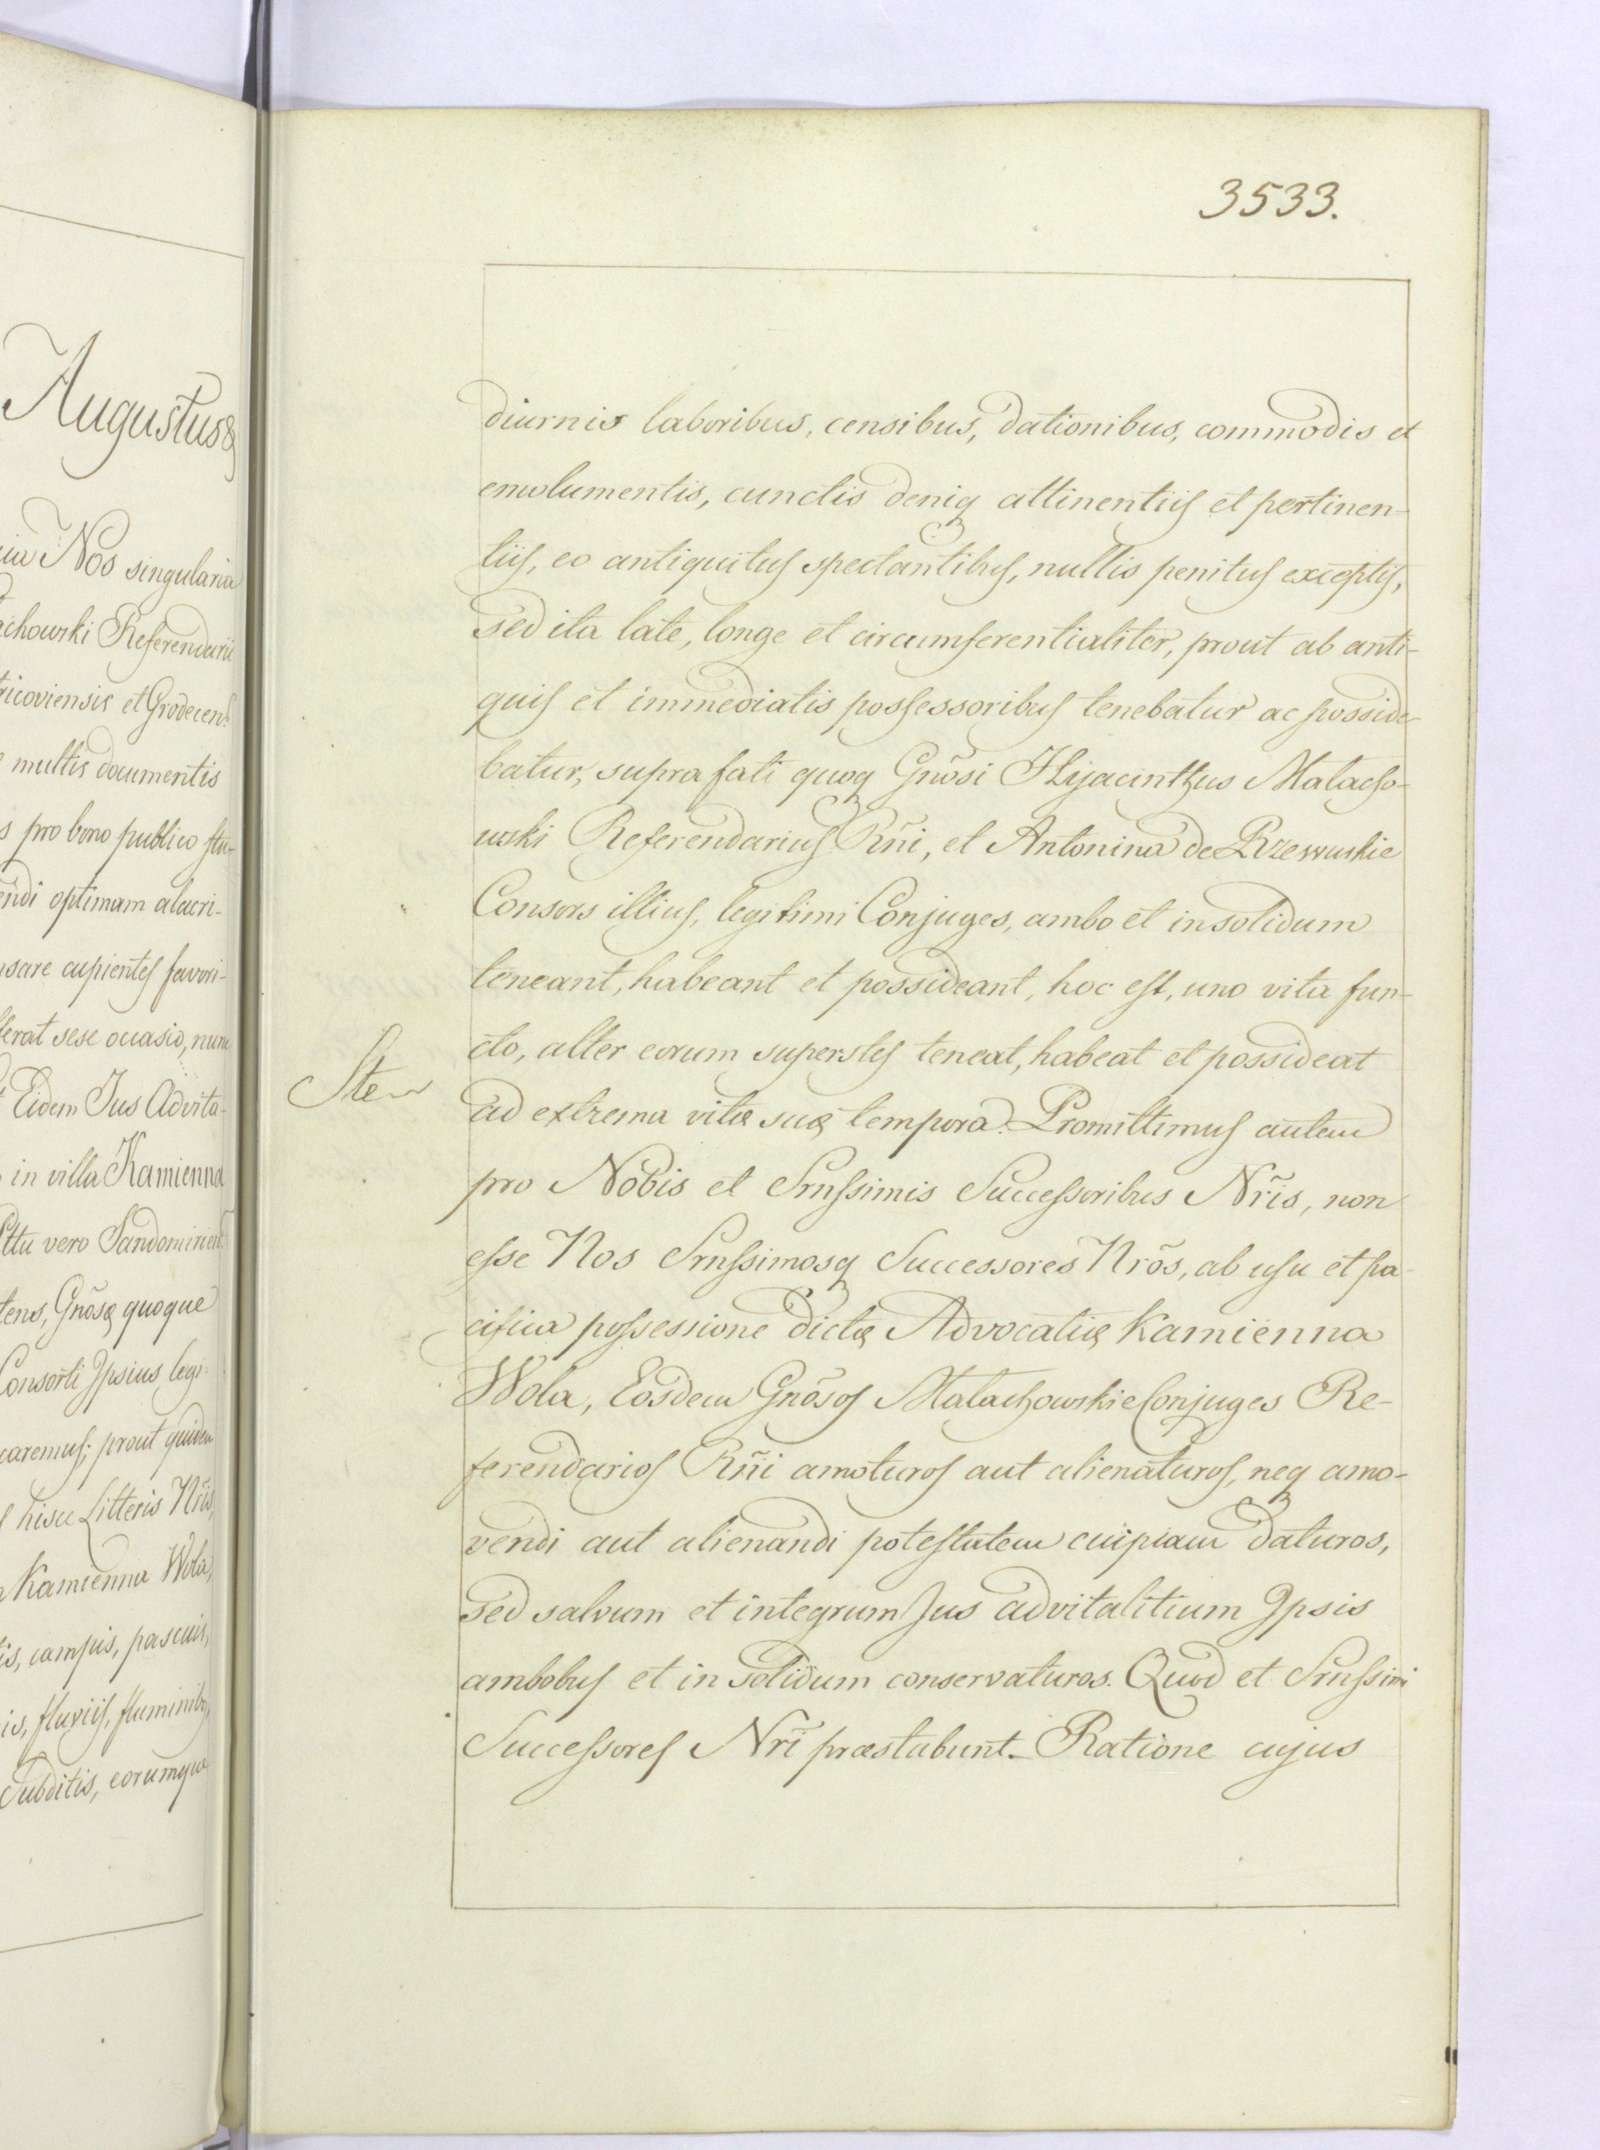 Augustus
Nos singularia
chowski Referendarii
ricoviensis et Grodecens.
multis documentis
pro bono publico stu-
endi optimam alacri-
sare cupientes favori-
ferat sese occasio, nunc
Eidem Jus Advita-
in villa Kamienna
vero Sandomirien
tens, Gnõsæ quoque
Consorti Jpsius legi-
caremus; prout quidem
hisce Litteris Nr̃is,
Kamienna Wola,
is, campis, pascuis,
is, fluviis, fluminibq,
Subditis, eorumque
3533.
diurnis laboribus, censibus, dationibus, commodis et
emolumentis, cunctis deniq attinentiis et pertinen-
tiis, eo antiquitus spectantibus, nullis penitus exceptis,
sed ita late, longe et circumferentialiter, prout ab anti-
quis et immediatis possessoribus tenebatur ac posside-
batur, suprafati quoq Gnõsi Hyacinthus Malacho-
wski Referendarius Rñi, et Antonina de Rzewuskie
Consors illius, legitimi Conjuges, ambo et insolidum
teneant, habeant et possideant, hoc est, uno vita fun-
cto, alter eorum superstes teneat, habeat et possideat
Stem
ad extrema vitæ suæ tempora. Promittimus autem
pro Nobis et Srnssimis Successoribus Nr̃is, non
esse Nos Srnssimosq Successores Nrõs, ab usu et pa-
cifica possessione dictæ Advocatiæ Kamienna
Wola, Eosdem Gnõsos Malachowskie Conjuges Re-
ferendarios Rñi amoturos aut alienaturos, neq amo-
vendi aut alienandi potestatem cuipiam daturos,
sed salvum et integrum Jus advitalitium Jpsis
ambobus et in solidum conservaturos. Quod et Srnssimi
Successores Nr̃i præstabunt. Ratione cujus